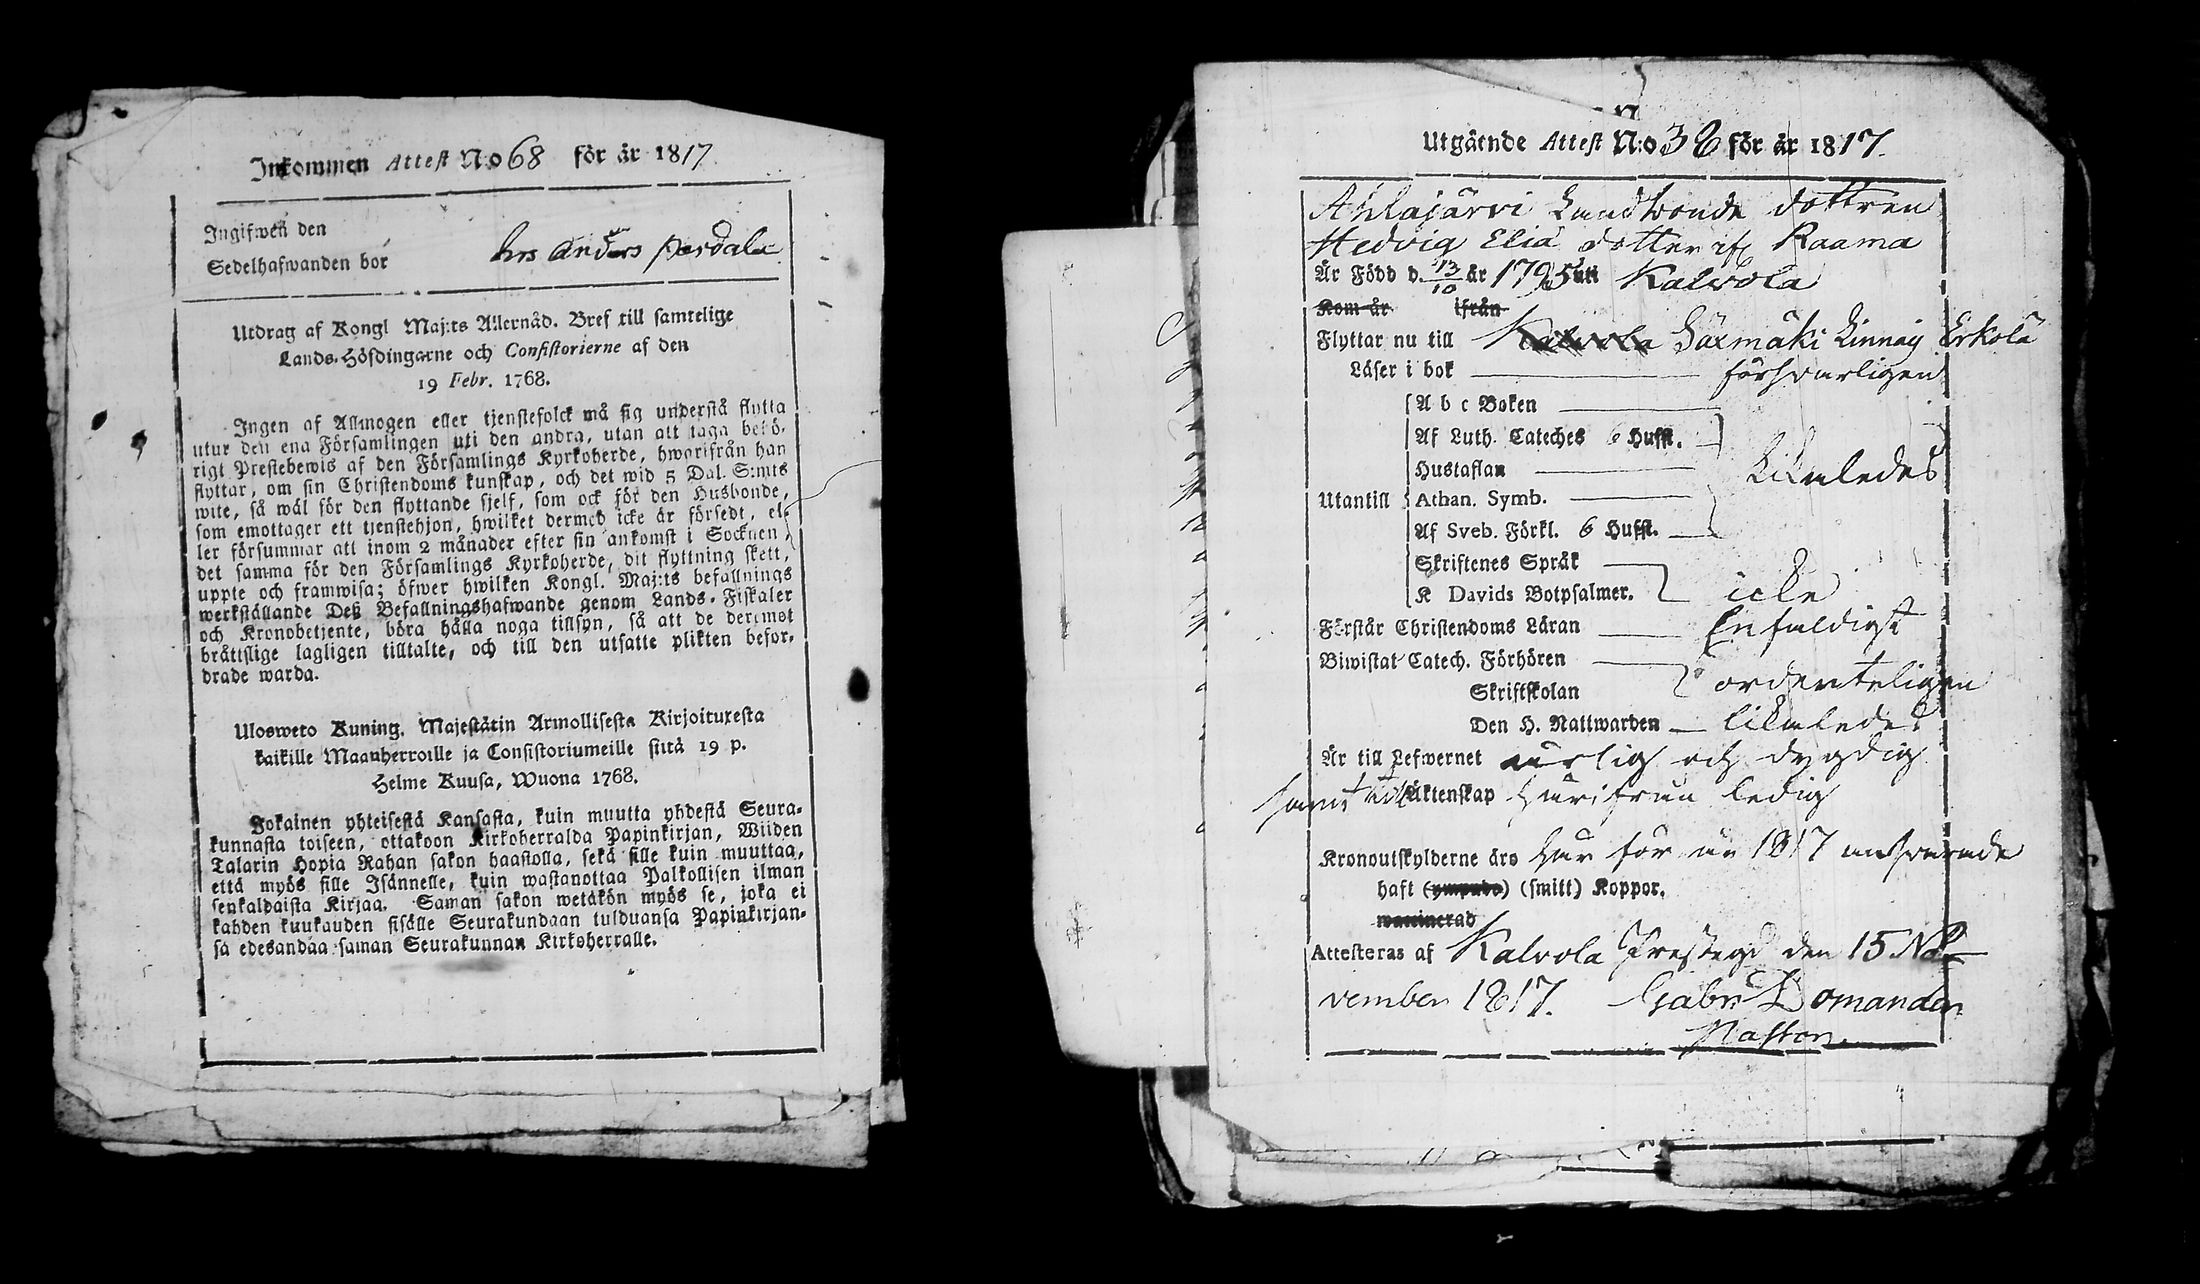 Inkommen Attest N:o 68 för år 1817
Ingifwen den
Sedelhafwanden bor hos Anders Perdala
Utdrag af Kongl Maj:ts Allernåd. Bref till samtelige
Lands-Höfdingarne och Consistorierne af den
19 Febr. 1768.
Ingen af Allmogen eller tjenstefolck må sig understå flytta
utur den ena Församlingen uti den andra, utan att taga behö-
rigt Prestebewis af den Församlings Kyrkoherde, hworifrån han
flyttar, om sin Christendoms kunskap, och det wid 5 Dal. S:mts
wite, så wäl för den flyttande sjelf, som ock för den Husbonde,
som emottager ett tjenstehjon, hwilket dermed icke är försedt, el-
ler försummar att inom 2 månader efter sin ankomst i Socknen,
det samma för den Församlings Kyrkoherde, dit flyttning skett,
uppte och framwisa; öfwer hwilken Kongl. Maj:ts befallnings
werkställande Deß Befallningshafwande genom Lands-Fiskaler
och Kronobetjente, böra hålla noga tillsyn, så att de deremot
bråttslige lagligen tilltalte, och till den utsatte plikten befor-
drade warda.
Ulosweto Kuning. Majestätin Armollisesta Kirjoituxesta
kaikille Maanherroille ja Consistoriumeille siitä 19 p.
Helme Kuusa, Wuona 1768.
Jokainen yhteisestä Kansasta, kuin muutta yhdestä Seura-
kunnasta toiseen, ottakoon Kirkoherralda Papinkirjan, Wiiden
Talarin Hopia Rahan sakon haastolla, sekä sille kuin muuttaa,
että myös sille Isännelle, kuin wastanottaa Palkollisen ilman
senkaldaista Kirjaa. Saman sakon wetäkön myös se, joka ei
kahden kuukauden sisälle Seurakundaan tulduansa Papinkirjan-
sa edesandaa saman Seurakunnan Kirkoherralle.
Utgående Attest N:o 38 för år 1817.
Ahlajärvi Landbonde dottren
Hedvig Elia dotter if Raama
Är Född d. 13/10 år 1795 uti Kalvola
Kom år ifrån
Flyttar nu till Kalvola Säxmäki Linnais Erkola
Läser i bok försvarligen
A b c Boken
Af Luth. Cateches 6 Hufst.
Hustaflan Likaledes
Utantill Athan. Symb.
Af Sveb. Förkl. 6 Hufst.
Skriftenes Språk
K Davids Botpsalmer. icke
Förstår Christendoms Läran Enfaldigt
Biwistat Catech. Förhören
Skriftskolan ordenteligen
Den H. Nattwarden likaledes
Är till Lefwernet ärlig och dygdig
samt till Äktenskap härifrån ledig
Kronoutskylderne äro här för år 1817 ansvarade
haft (ympade) (smitt) Koppor.
waccinerad
Attesteras af Kalvola Prestegd den 15 No-
vember 1817. Gabr Domander
Pastor.